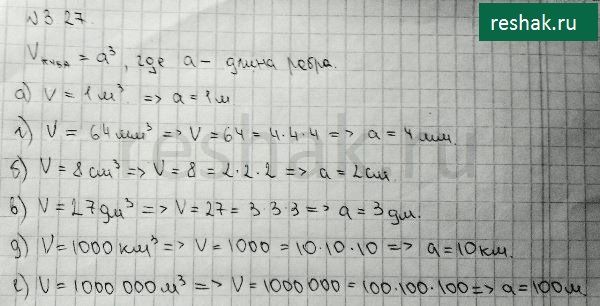 reshak.ru
№ 3 27.
Vкуба = a³, где a – длина ребра.
а) V = 1 м³ => a = 1 м
г) V = 64 мм³ => V = 64 = 4·4·4 => a = 4 мм.
б) V = 8 см³ => V = 8 = 2·2·2 => a = 2 см.
в) V = 27 дм³ => V = 27 = 3 3·3 => a = 3 дм.
д) V = 1000 км³ => V = 1000 = 10·10·10 => a = 10 км.
е) V = 1000 000 м³ => V = 1000 000 = 100·100·100 => a = 100 м.
reshak.ru